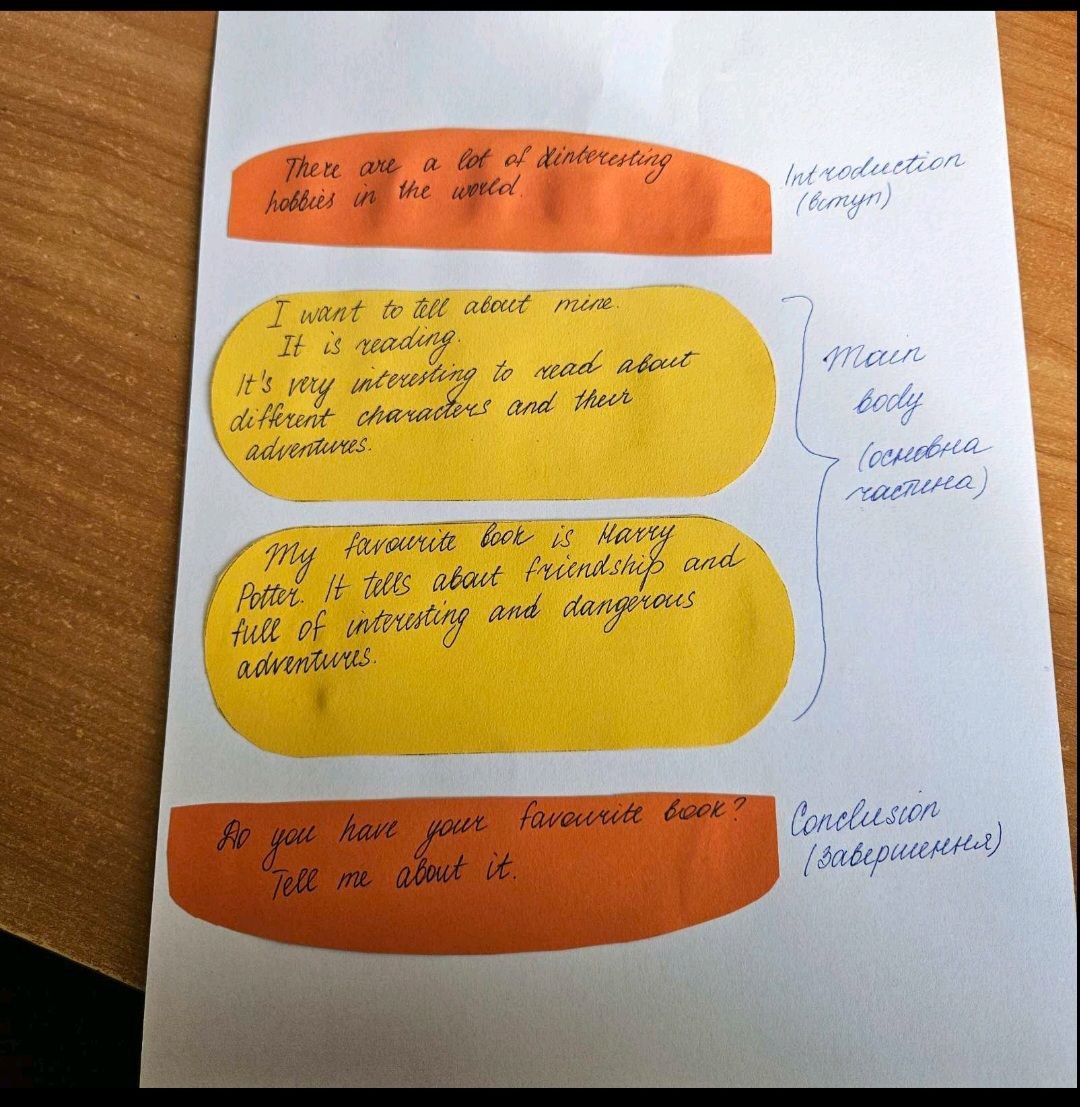 There are a lot of interesting
hobbies in the world.
Introduction
(вступ)
I want to tell about mine.
It is reading.
It's very interesting to read about
different characters and their
adventures.
My favourite book is Harry
Potter. It tells about friendship and
full of interesting and dangerous
adventures.
Main
body
(основна
частина)
Do you have your favourite book?
Tell me about it.
Conclusion
(Завершення)